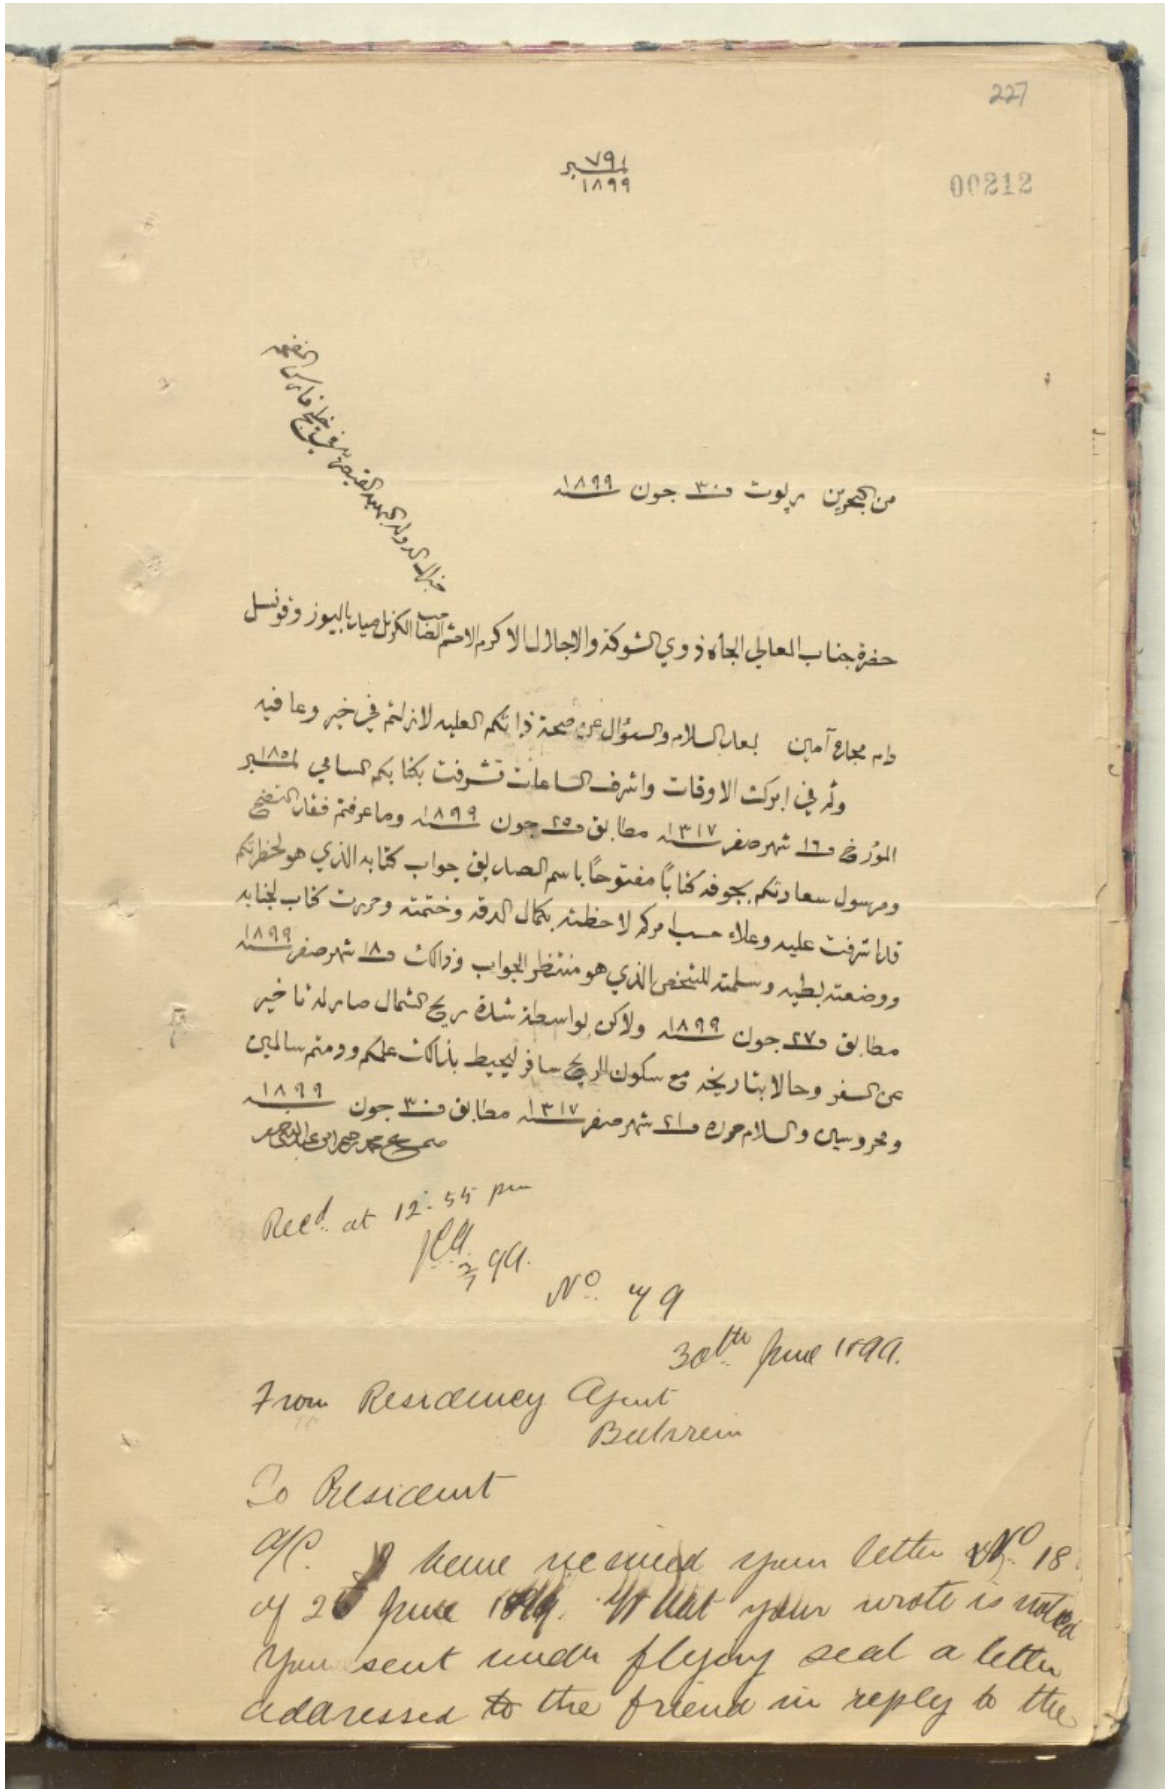 227
00212
نمبر ٧٩
١٨٩٩
من البحرين ريبورت في ٣٠ جون سنه ١٨٩٩
حضرة جناب العالي الجاه ذوي الشوكة والاجلال الاكرم الاحشم الصاحب باليوز وقونسل
جنرال الدولة البهية القيصرية في خليج فارس
دام مجده آمين بعد السلام والسؤال عن صحة ذاتكم العليه لازلتم في خير وعافيه
وانه في ابرك الاوقات واشرف الساعات تشرفت بكتابكم السامي
المؤرخ في ١٦ شهر صفر سنه ١٣١٧ مطابق في ٢٥ جون سنه ١٨٩٩ وما عرفتم فقد اتضح
ومرسول سعادتكم بجوفه كتاباً مفتوحاً باسم الصديق جواب كتابه الذي هو لحضرتكم
قد اشرفت عليه وعلاء حسب امركم لاحظته بكمال الدقه وختمته وحررت كتاب لجنابه
ووضعته بطيه وسلمته للشخص الذي هو منتظر الجواب وذالك في ١٨ شهر صفر سنه ١٨٩٩
مطابق في ٢٧ جون سنه ١٨٩٩ ولاكن بواسطة شدة ريح الشمال صار له تاخير
عن السفر وحالا بتاريخه مع سكون الريح سافر ليحيط بذالك علمكم ودمتم سالمين
ومحروسين والسلام حرر في ٢١ شهر صفر سنه ١٣١٧ مطابق في ٣٠ جون سنه ١٨٩٩
Recd. at 12.55 pm
2/7 99.
No. 79
30th June 1899.
From Residency Agent
Bahrein
To Resident
A/C. I have received your letter No. 18
of 25 June 1899. What your wrote is noted
You sent under flying seal a letter
addressed to the friend in reply to the